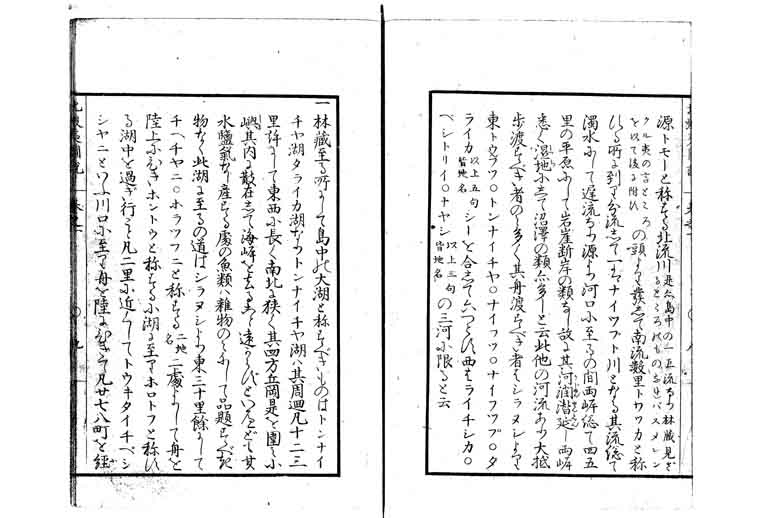 源トモーと称する北流川是亦島中の一直流なり林蔵見ざ
クル夷の言ところの頭より発して南流数里トワツカと称
しる所に到り分流して一はナイツフト川となる其流惣て
濁水にして遅流なり源より河口に至るの間両岬惣て四五
里の平原にして岩崖断岸の類なし故に其河濶漫し両岬
悉く湿地にして沼澤の類亦多しと云此他の河流あり大抵
歩渡すべき者のし多く其舟渡すべき者はシラヌシより
東トウフツ○トンナイチヤ○ナイフツ○ナイフツブ○タ
ライカ以上五句皆地名シーと合して六つとひ西はライチシカ○
ベシトリイ○ナヤシ以上三句皆地名の三河に限ると云
一林蔵至る所にして島中の大湖と称すべきものはトンナイ
チヤ湖タライカ湖なりトンナイチヤ湖は其周廻凡十二三
里許にして東西に長く南北に狭く其四方丘岡是を圍ミ小
嶼其内に散在して海岬を去る事遠からずといへども其
水鹽氣なく産する處の魚類雜物のミにして品題すべき
物なく此湖に至るの道はシラヌシより東三十里餘にして
チベチヤニ○ホラツフニと称する二地名二處よりして舟を
陸上にひきホントウと称する小湖に至りホロトフと称す
る湖中を過ぎ行こと凡二里に近くしてトウキタイチベシ
シヤニといふ川口に至り舟を陸にひきて凡廿七八町を經